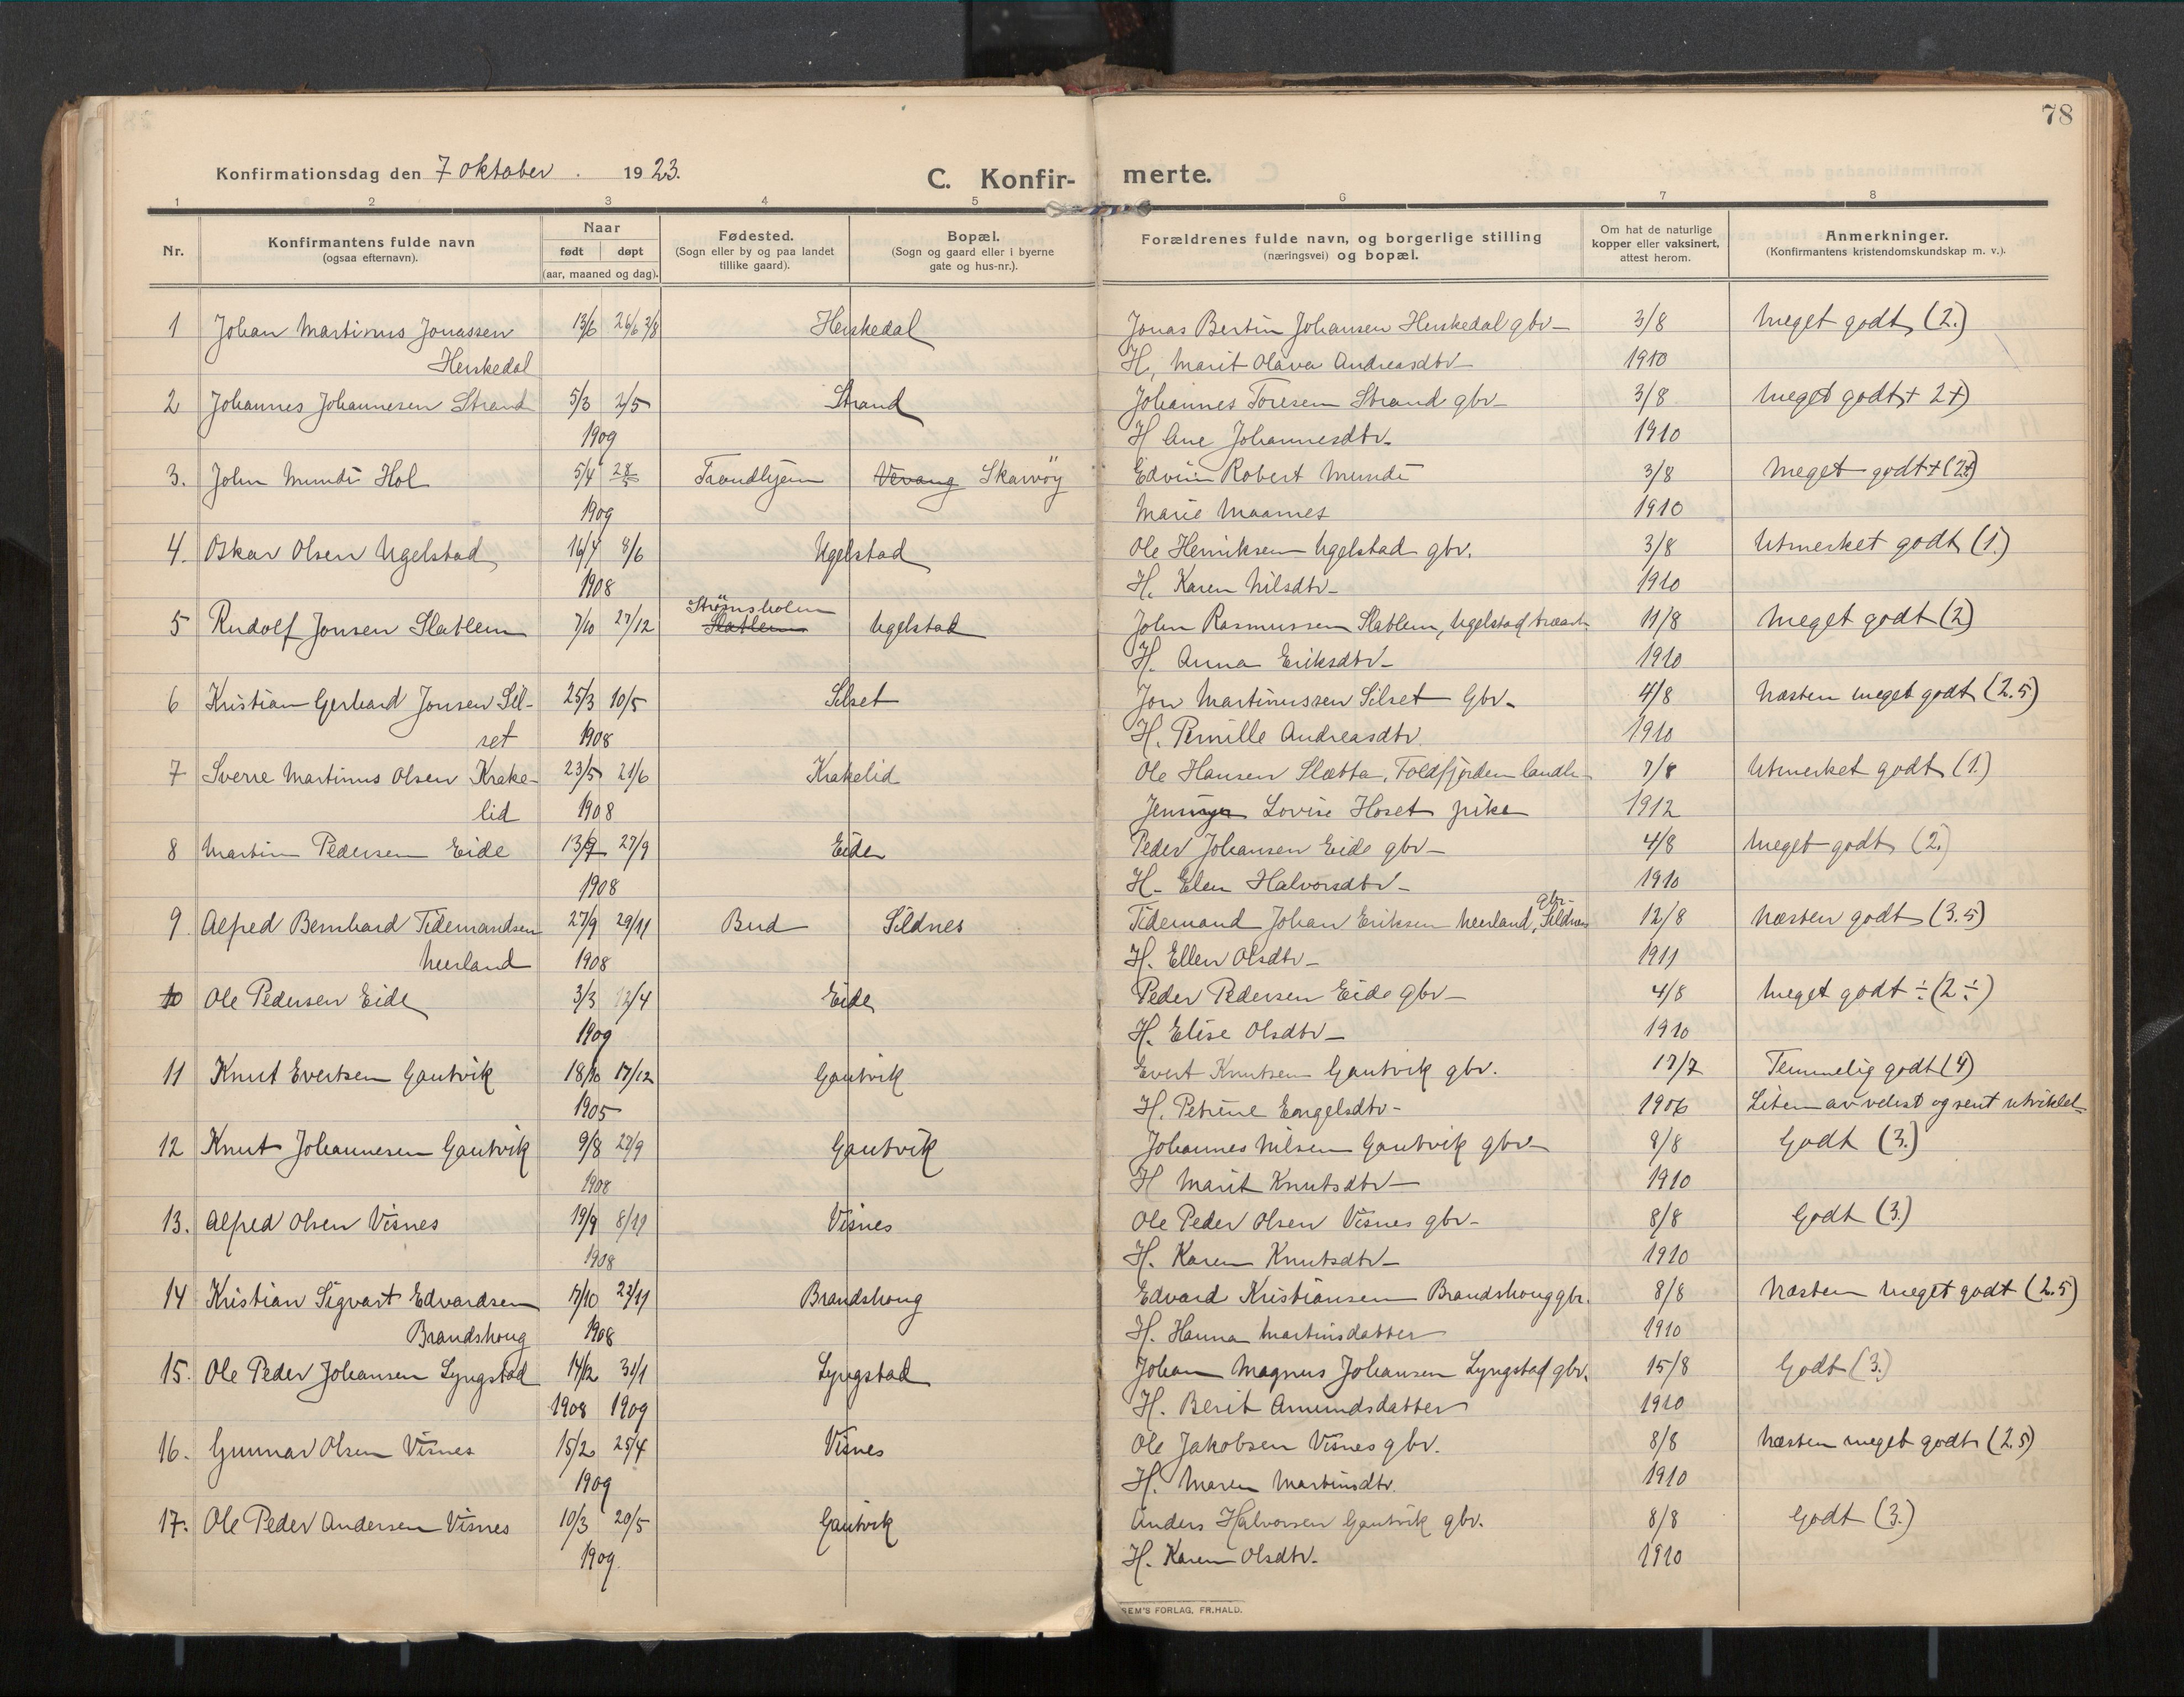 78
Konfirmationsdag den 7 oktober 1923.
C. Konfir-merte.
1 2 3 4 5 6 7 8
Nr. Konfirmantens fulde navn (ogsaa efternavn). Naar født døpt (aar, maaned og dag). Fødested. (Sogn eller by og paa landet tillike gaard). Bopæl. (Sogn og gaard eller i byerne gate og hus-nr.). Forældrenes fulde navn, og borgerlige stilling (næringsvei) og bopæl. Om hat de naturlige kopper eller vaksinert, attest herom. Anmerkninger. (Konfirmantens kristendomskundskap m. v.).
1 Johan Martinus Jonassen 13/6 26/6 2/8 Herskedal Jonas Bertin Johansen Herskedal gbr 3/8 Meget godt (2.)
Herskedal H. Marit Olava Andreasdtr 1910
2 Johannes Johannesen Strand 5/3 2/5 Strand Johannes Toresen Strand gbr 3/8 Meget godt+ 2+)
1909 H Ane Johannesdtr. 1910
3. John Munde Hol 5/4 28/5 Trondhjem Vevang Skarvöy Edvin Robert Munde 3/8 Meget godt+(2+)
1909 Marie Maarnes 1910
4. Oskar Olsen Ugelstad 16/4 8/6 Ugelstad Ole Henriksen Ugelstad gbr. 3/8 Utmerket godt (1.)
1908 H. Karen Nilsdtr 1910
5 Rudolf Jonsen Slatlem 7/10 27/12 Strømsholm Slatlem Ugelstad John Rasmussen Slatlem, Ugelstad 11/8 Meget godt (2)
H. Anna Eriksdtr 1910
6 Kristian Gerhard Jonsen Sil- 25/3 10/5 Silset Jon Martinussen Silset Gbr. 4/8 Næsten meget godt (2.5)
set 1908 H. Pernille Andreasdtr 1910
7 Sverre Martinus Olsen Krake- 23/5 21/6 Krakelid Ole Hansen Slætta, Foldfjorden landh 7/8 Utmerket godt (1.)
lid 1908 Lovise Hoset pike 1912
8 Martin Pedersen Eide 13/9 27/9 Eide Peder Johansen Eide gbr 4/8 Meget godt (2.)
1908 H. Elen Halvorsdtr 1910
9. Alfred Bernhard Tidemandsen 27/9 29/11 Bud Sildnes Tidemand Johan Eriksen Neerland, gbr- Sildnes 12/8 Næsten godt (3.5)
Neerland 1908 H. Ellen Olsdtr 1911
10 Ole Pedersen Eide 3/3 12/4 Eide Peder Pedersen Eide gbr 4/8 Meget godt ÷ (2÷)
1909 H. Elise Olsdtr 1910
11 Knut Evertsen Gautvik 18/10 17/12 Gautvik Evert Knutsen Gautvik gbr. 17/7 Temmelig godt (4)
1905 H. Petrine Engelsdtr- 1906 Liten av vekst og sent utviklet
12 Knut Johannesen Gautvik 9/8 27/9 Gautvik Johannes Nilsen Gautvik gbr 8/8 Godt (3.)
1908 H Marit Knutsdtr 1910
13. Alfred Olsen Visnes 19/9 8/11 Visnes Ole Peder Olsen Visnes gbr- 8/8 Godt (3.)
1908 H. Karen Knutsdtr 1910
14 Kristian Sigvart Edvardsen 17/10 22/11 Brandshoug Edvard Kristiansen Brandshoug gbr. 8/8 Næsten meget godt (2.5)
Brandshoug 1908 H. Hanna Martinsdatter 1910
15. Ole Peder Johansen Lyngstad 14/12 31/1 Lyngstad Johan Magnus Johansen Lyngstad gbr. 15/8 Godt (3.)
1908 1909 H. Berit Amundsdatter 1910
16. Gunnar Olsen Visnes 15/2 25/4 Visnes Ole Jakobsen Visnes gbr. 8/8 Næsten meget godt (2.5)
1909 H. Maren Martinsdtr. 1910
17. Ole Peder Andersen Visnes 10/3 20/5 Gautvik Anders Halvorsen Gautvik gbr. 8/8 Godt (3.)
1909. H. Karen Olsdtr. 1910
SEM'S FORLAG, FR.HALD.